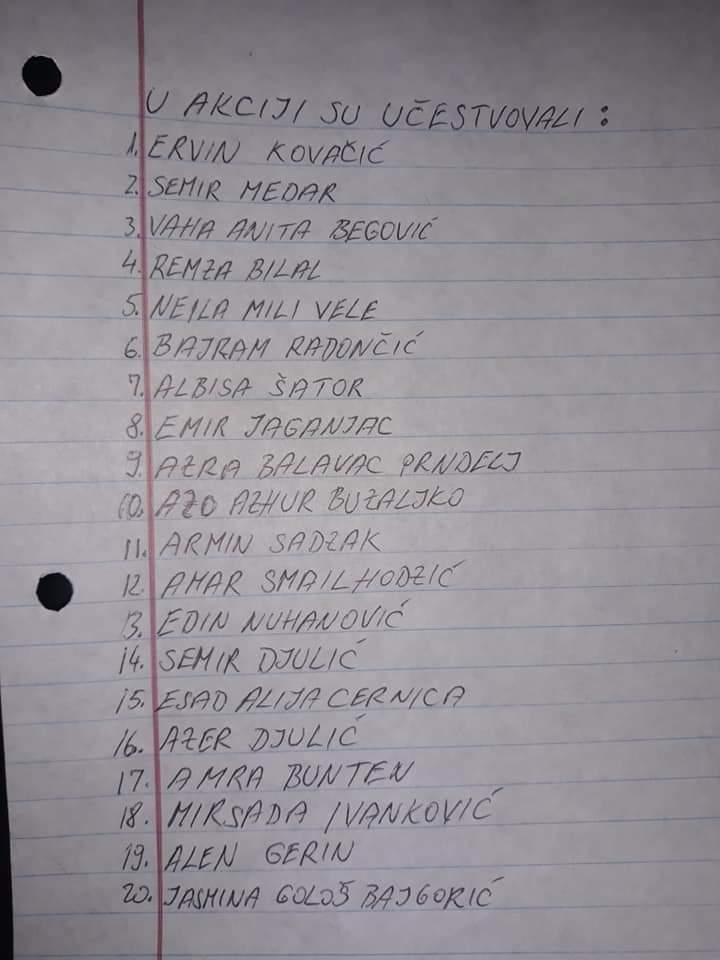 U AKCIJI SU UČESTVOVALI:
1. ERVIN KOVAČIĆ
2. SEMIR MEDAR
3. VAHA ANITA BEGOVIĆ
4. REMZA BILAL
5. NEJLA MILI VELE
6. BAJRAM RADONČIĆ
7. ALBISA ŠATOR
8. EMIR JAGANJAC
9. AZRA BALAVAC PRNDELJ
10. AZO AZHUR BUZALJKO
11. ARMIN SADZAK
12. AMAR SMAILHODZIĆ
13. EDIN NUHANOVIĆ
14. SEMIR DJULIĆ
15. ESAD ALIJA CERNICA
16. AZER DJULIĆ
17. AMRA BUNTEN
18. MIRSADA IVANKOVIĆ
19. ALEN GERIN
20. JASMINA GOLOŠ BAJGORIĆ